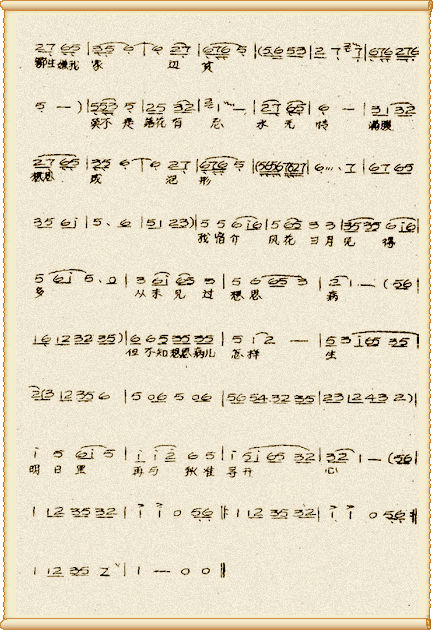 27 65 | 35 6 | 6 27 | 676 5 | (5653 | 2 7 7 | 676 276
生嫌我 家 贫
5 — ) | 553 5 | 25 32 | 1 — | 27 65 | 6 — | 31 32
不是 落花有 意 水无 情 满腹
27 65 | 35 6 | 6 27 | 676 5 | (5656 7627 | 6… 7 | 67 65
想思 成 泡 形
35 6i | 5. 6 | 5i 23) | 5 5 6 i6 | 5 65 3 3 | 35 35 6 i6
我 介 风花 日月 见 得
5 6i 5. 0 | 3 6i 65 3 | 5 6 65 3 | 21 — (56
多 从未 见 过 想思 病
16 12 32 35) | 6 6 5 35 35 | 5 i 2 — | 5 3 i65 35
但 不知想思病儿 怎样 生
2(3 12 35 6 | 5 06 5 06 | 56 54 32 35 | 23 12 43 2)
i 5 6i 5 | i i 2 6 5 | i 5i 65 32 | 32 1 — (56
明 日里 再与 张 准 寻开 心
1 12 35 32 | i i 0 56 | 1 12 35 32 | i i 0 56
1 12 35 2 | 1 — 0 0